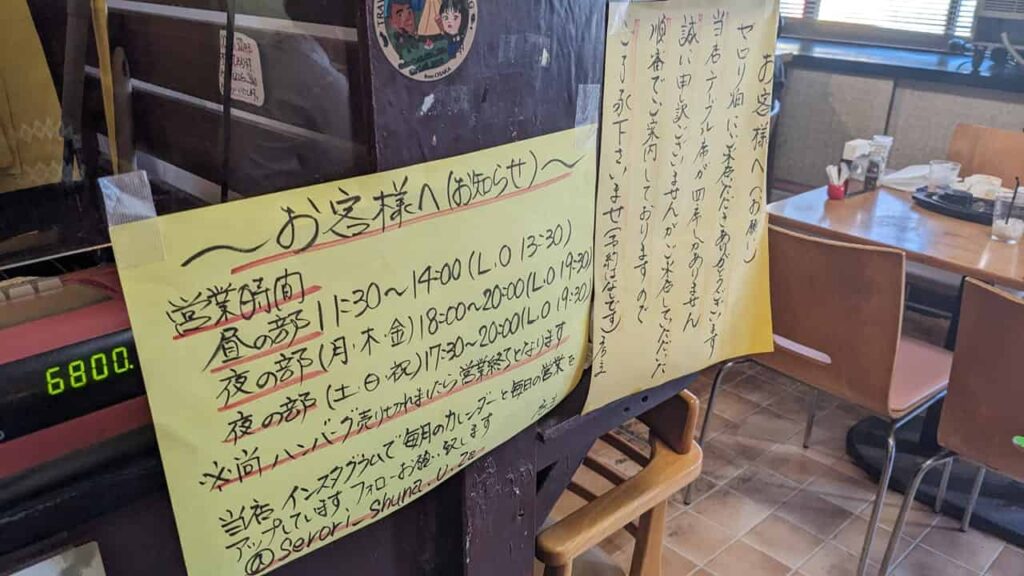 〜お客様へ(お知らせ)〜
営業時間
昼の部 11:30〜14:00(L.O 13:30)
夜の部(月・木・金)18:00〜20:00(L.O 19:30)
夜の部(土・日・祝)17:30〜20:00(L.O 19:30)
※尚ハンバーグ売り切れましたら営業終了となります
当店、インスタグラムで毎月のカレンダーと毎日の営業を
アップしています、フォローお願い致します
@serori_shuna.u.ze
店主
お客様へ(お願い)
セロリ畑にご来店ださりありがとうございます
当店テーブル席が四席しかありません
誠に申訳ございませんがご来店していただいた
順番でご案内しておりますので
ご了承下さいませ(予約はなしです)店主
6800.